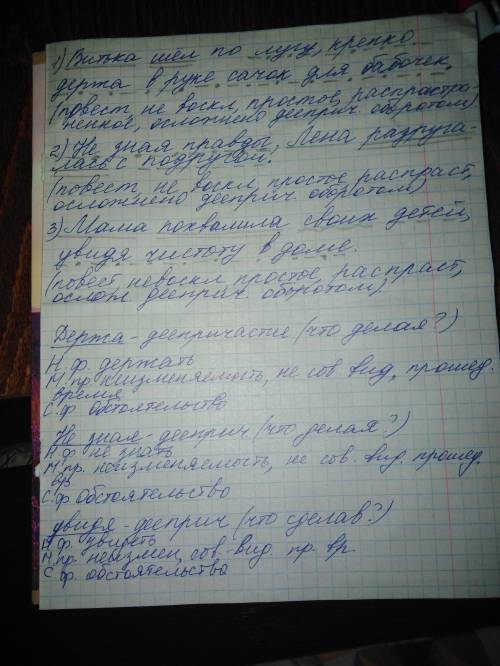 1) Витька шёл по лугу, крепко
держа в руке сачок для бабочек.
(повест, не воскл, простое, распростра-
ненное, осложнено дееприч. оборотом)
2) Не зная правды, Лена разруга-
лась с подругой.
(повест, не воскл, простое, распраст,
осложнено дееприч. оборотом)
3) Мама похвалила своих детей,
увидя чистоту в доме.
(повест невоскл, простое, распраст,
ослож дееприч. оборотом).
Держа - деепричастие (что делая?)
Н. ф. держать
М. пр неизменяемость, не сов вид, прошед.
время
С. ф. обстоятельство
Не зная - дееприч (что делая?)
Н. ф не знать
М. пр. неизменяемость, не сов. вид. прошед.
вр
С. ф обстоятельство
увидя - дееприч (что сделав?)
Н. ф. увидеть
М. пр. неизмен, сов. вид пр. вр.
С. ф. обстоятельство